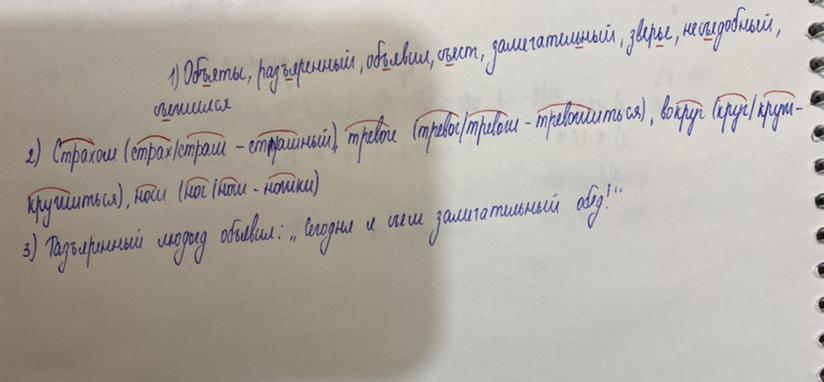 1) Объяты, разъяренный, объявил, съест, замечательный, зверье, несъедобный,
съежился
2) Страхом (страх/страш - страшный), тревоге (тревог/тревож - тревожиться), вокруг (круг/круж-
кружиться), ноги (ног/нож - ножки)
3) Разъяренный людоед объявил: „Сегодня я съем замечательный обед!“